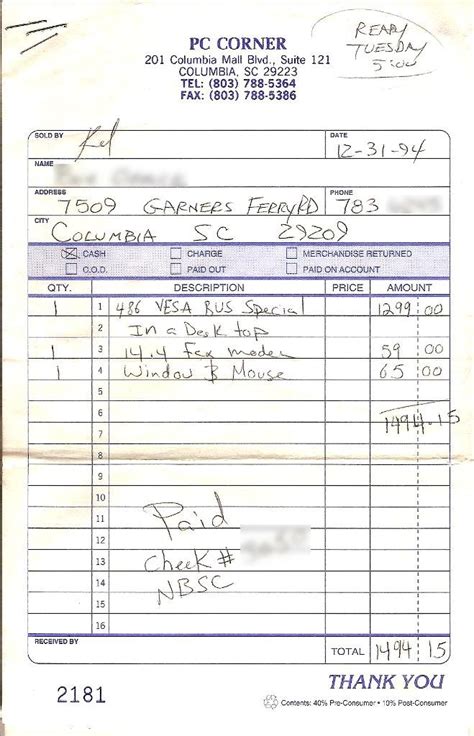 READY
TUESDAY
5:00
PC CORNER
201 Columbia Mall Blvd., Suite 121
COLUMBIA, SC 29223
TEL: (803) 788-5364
FAX: (803) 788-5386
SOLD BY DATE
12-31-94
NAME
ADDRESS PHONE
7509 GARNERS FERRY RD 783
CITY
COLUMBIA SC 29209
CASH CHARGE MERCHANDISE RETURNED
C.O.D. PAID OUT PAID ON ACCOUNT
QTY. DESCRIPTION PRICE AMOUNT
1 1 486 VESA BUS Special 1299 00
2 In a Desk top
1 3 14.4 Fax modem 59 00
1 4 Window & Mouse 65 00
5
6 1494.15
7
8
9
10
11 Paid
12
13 Check #
14 NBSC
15
16
RECEIVED BY TOTAL 1494 15
THANK YOU
2181
Contents: 40% Pre-Consumer • 10% Post-Consumer